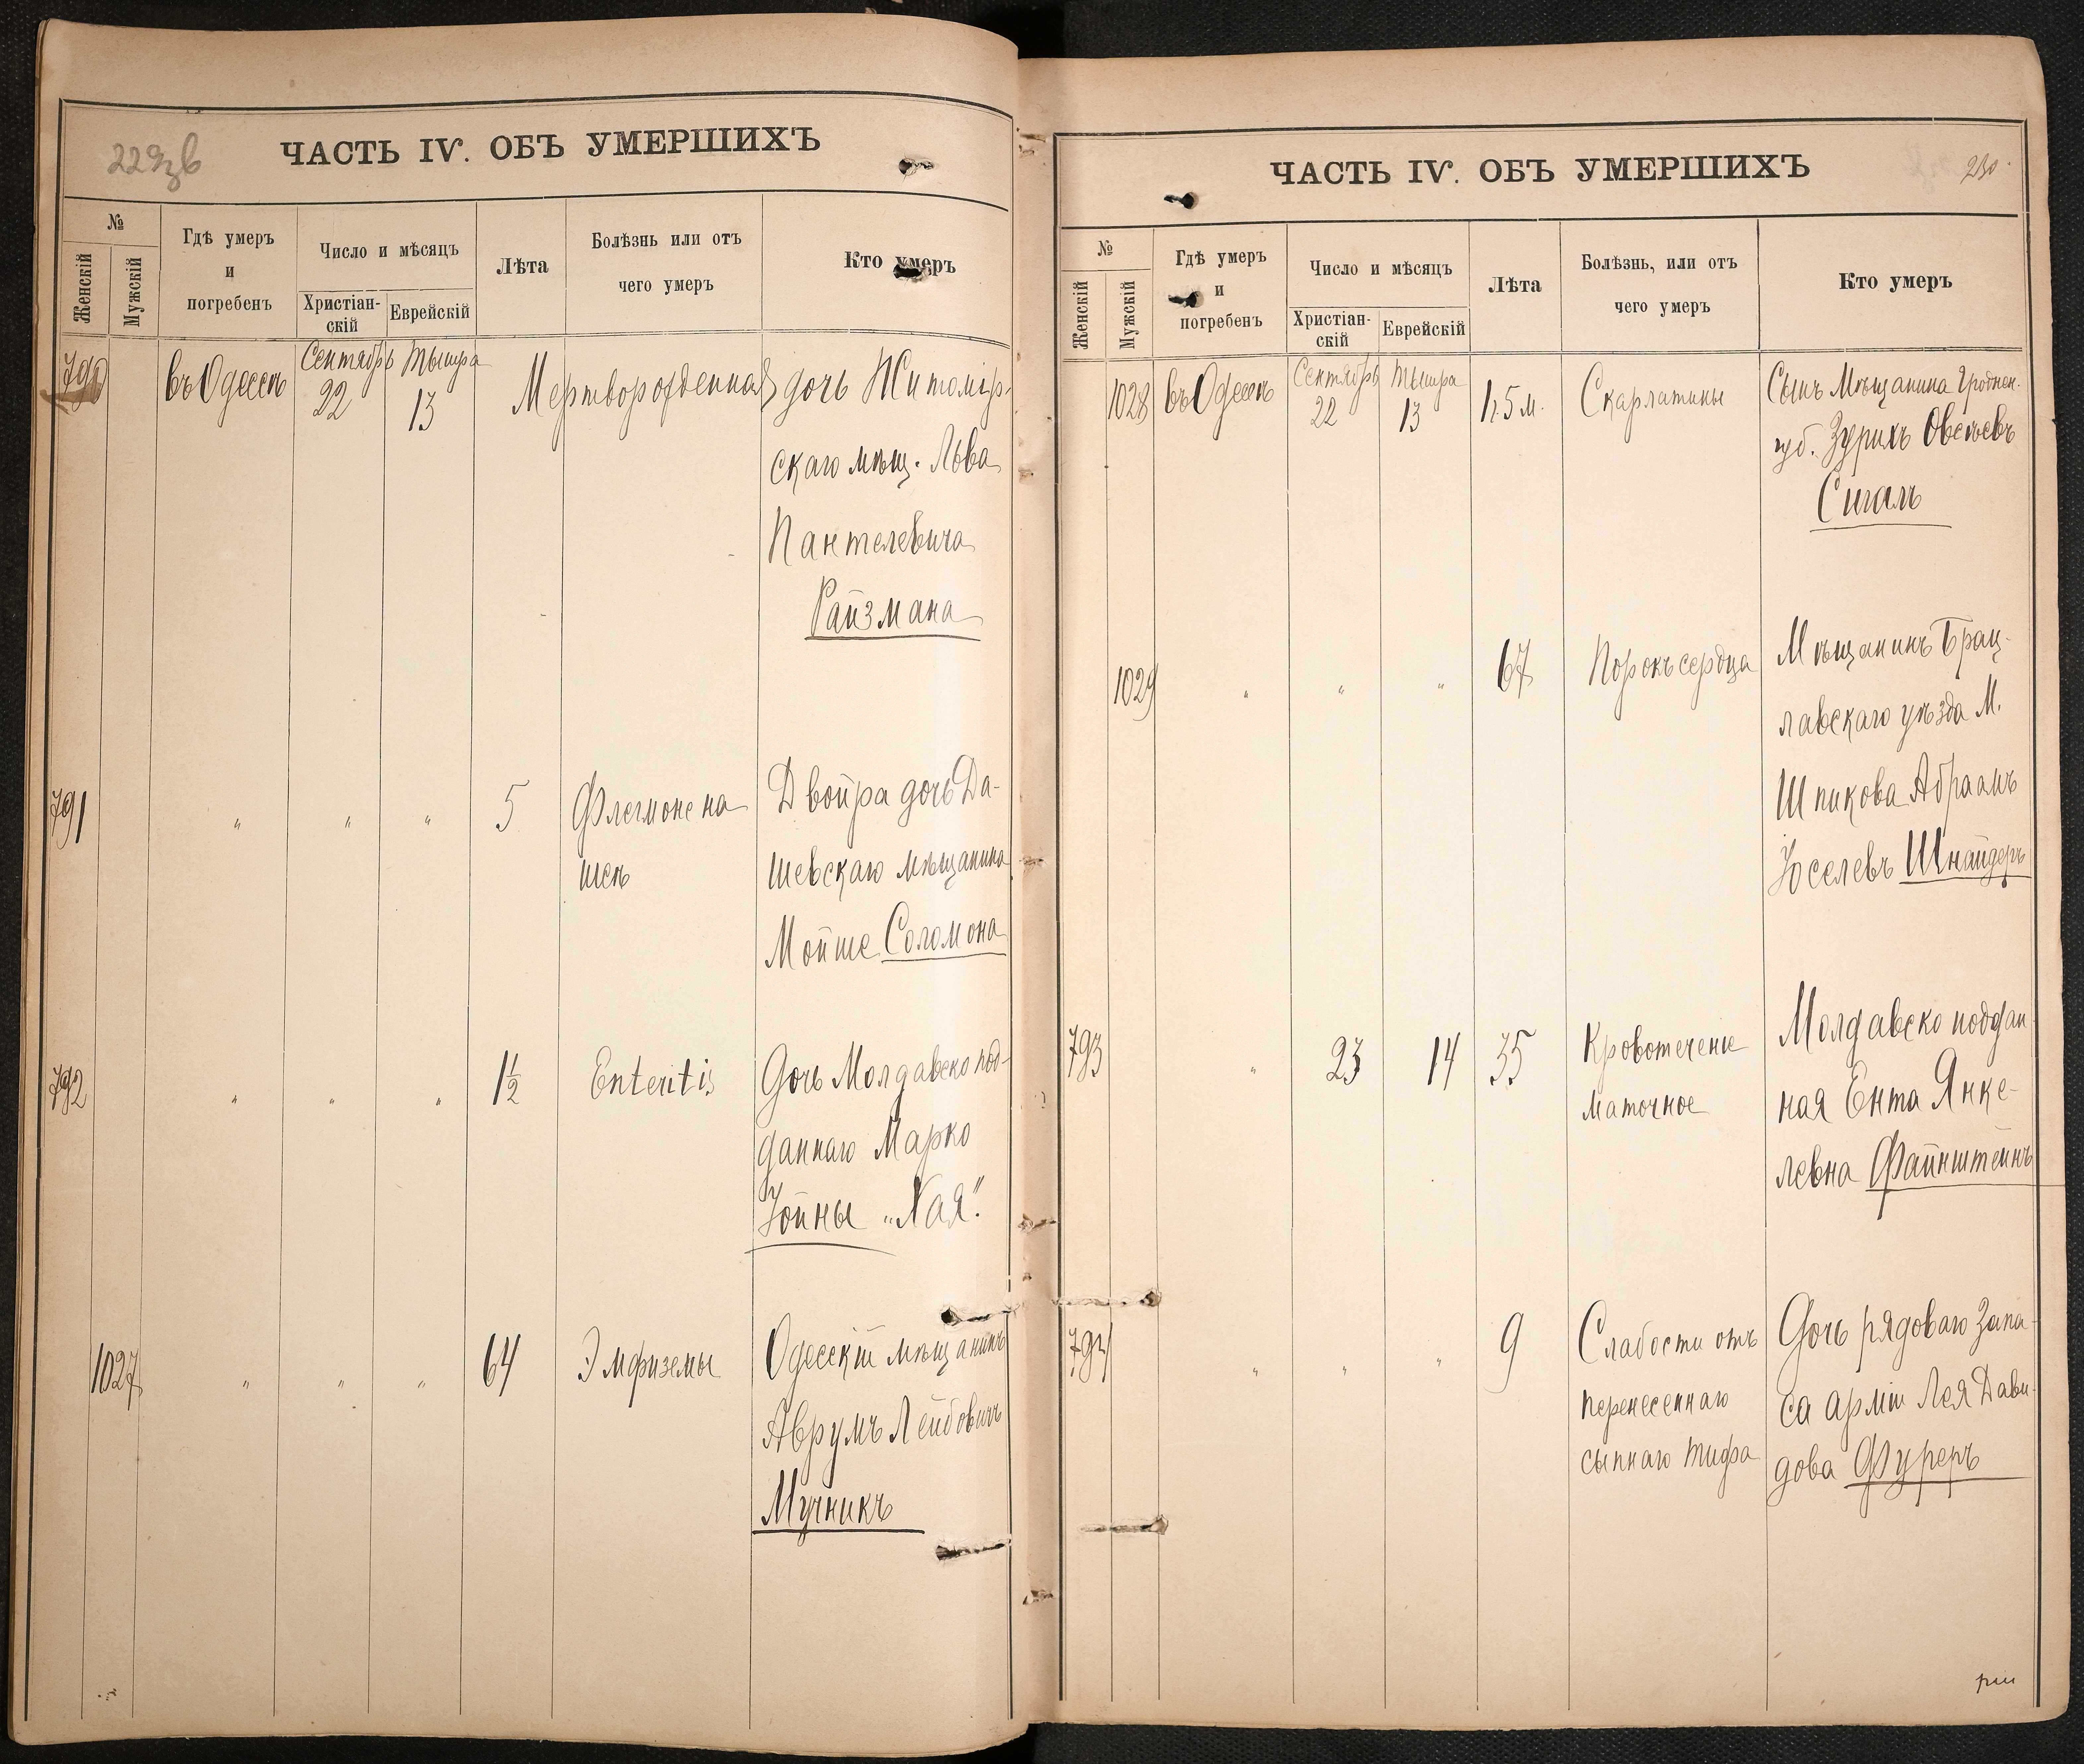 229зв
ЧАСТЬ IV. ОБЪ УМЕРШИХЪ
№
Женскій
Мужскій
Гдѣ умеръ
и
погребенъ
Число и мѣсяцъ
Христіан-
скій
Еврейскій
Лѣта
Болѣзнь или отъ
чего умеръ
Кто умеръ
790 въ Одессѣ Сентябрь 22 Тышра 13 Мертворожденная дочь Житомір-
скаго мѣщ. Льва
Пантелевича
Райзмана
791 " " " 5 Флегмоне на Двойра дочь Да-
шеѣ шевскаго мѣщанина
Мойше Соломона
792 " " " 1½ Enteritis Дочь Молдавско под-
даннаго Марко
Іойны „Хая"
1027 " " " 64 Эмфиземы Одесскій мѣщанинъ
Аврумъ Лейбовичъ
Мучникъ
ЧАСТЬ IV. ОБЪ УМЕРШИХЪ
230
№
Женскій
Мужскій
Гдѣ умеръ
и
погребенъ
Число и мѣсяцъ
Христіан-
скій
Еврейскій
Лѣта
Болѣзнь, или отъ
чего умеръ
Кто умеръ
1028 въ Одессѣ Сентябрь 22 Тышра 13 1г. 5 м. Скарлатины Сынъ Мѣщанина Гроднен.
губ. Зурихъ Овсѣевъ
Сигалъ
1029 " " " 67 Порокъ сердца Мѣщанинъ Брац-
лавскаго уѣзда М.
Шпикова Абраамъ
Іоселевъ Шнайдеръ
793 " 23 14 35 Кровотеченіе Молдавско поддан-
маточное ная Ента Янке-
левна Файнштейнъ
794 " " " 9 Слабости отъ Дочь рядоваго Запа-
перенесеннаго са арміи Лея Дави-
сыпнаго тифа дова Фуреръ